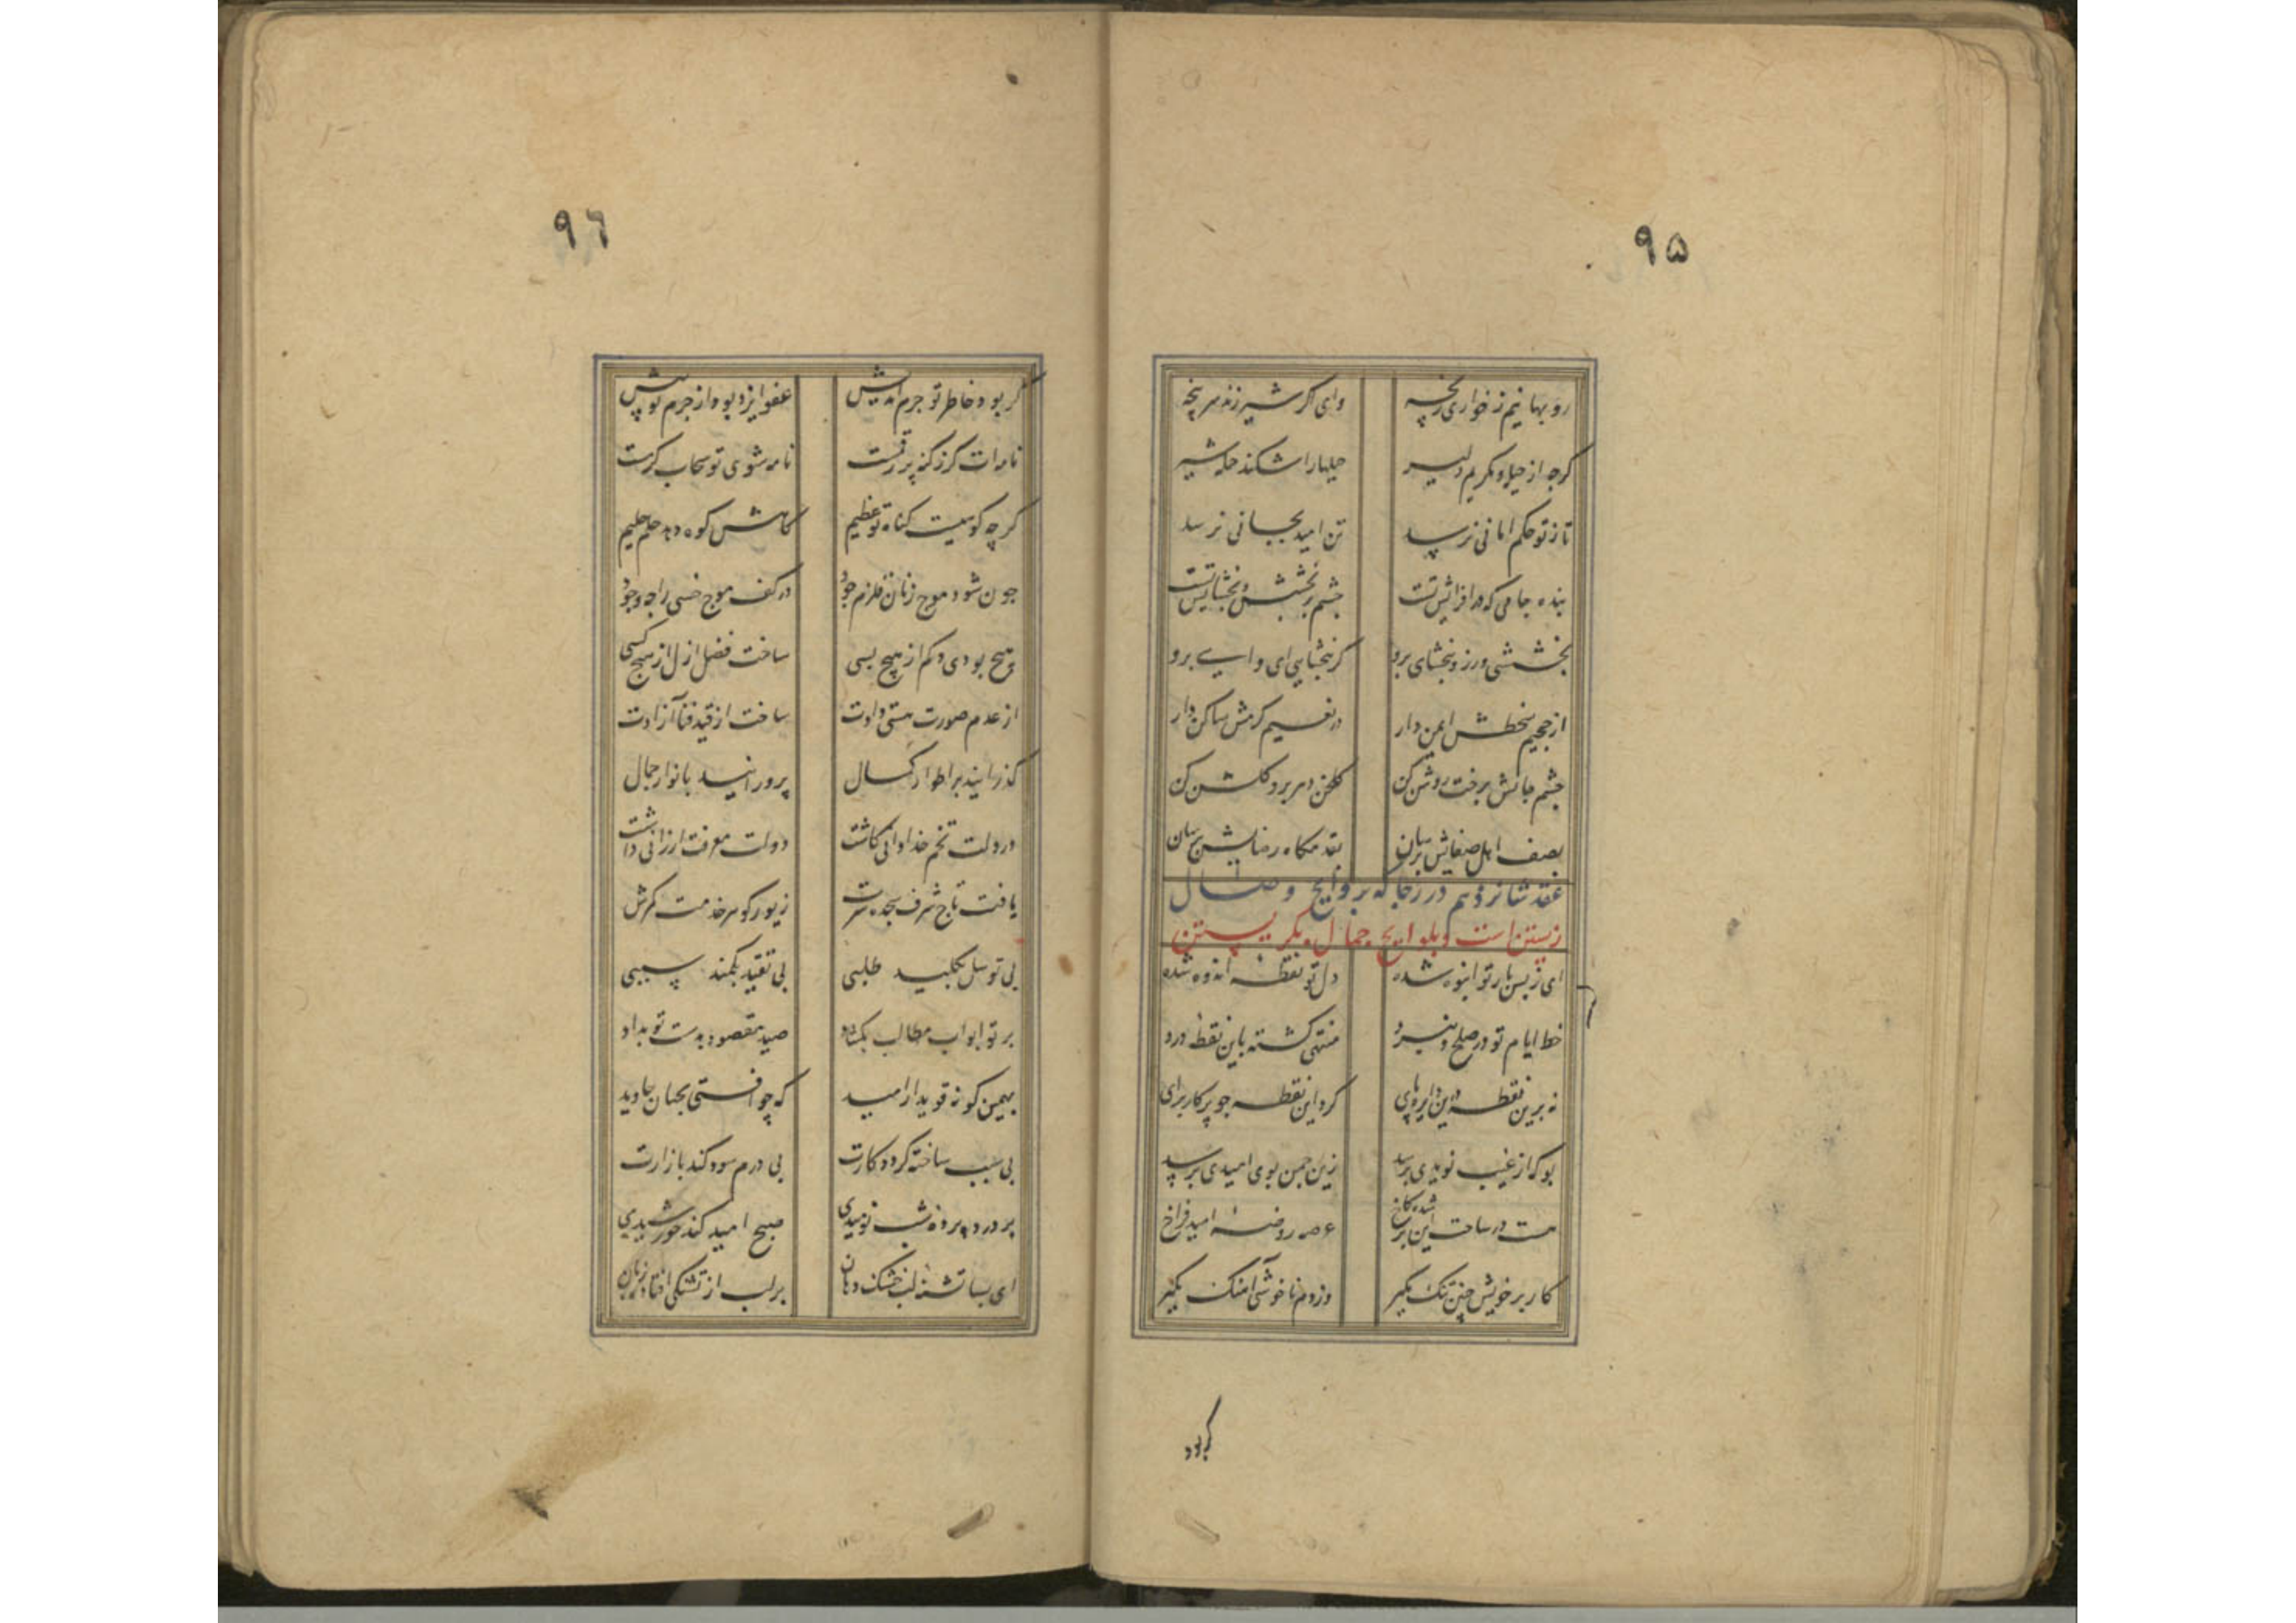 ۹۵
روبهانیم ز خواری رنجه وای اگر شیر زند سرپنجه
گرچه از حیله و مکریم دلیر حیلها را شکند حمله شیر
تا ز تو حکم امانی نرسد تن امید بجانی نرسد
بنده جامی که در افزایش تست چشم بر بخشش و بخشایش تست
بخششی ورز و ببخشای برو گر نبخشایی ای وای برو
از جحیم سخطش ایمن دار در نعیم کرمش ساکن دار
چشم جانش برخت روشن کن گلخن دهر برو گلشن کن
بصف اهل صفایش برسان بقدمگاه رضایش برسان
عقد شانزدهم در رجا که بروایح وصال
زیستن است و بلوایح جمال نگریستن
ای ز بس بار تو انبوه شده دل تو نقطه اندوه شده
خط ایام تو در صلح و نبرد منتهی گشته باین نقطه درد
نه برین نقطه درین دایره پای گرد این نقطه چو پرکار برای
بو که از غیب نویدی برسد زین چمن بوی امیدی برسد
هست در ساحت این بر شده کاخ عرصه روضه امید فراخ
کار بر خویش چنین تنگ مگیر وز دم ناخوشی آهنگ مگیر
گر بود
۹٦
گر بود خاطر تو جرم اندیش عفو ایزد بود از جرم تو بیش
نامه‌ات گر ز گنه پر رقمست نامه شوی تو سحاب کرمست
گرچه کوهیست گناه تو عظیم کاهش کوه دهد حلم حلیم
چون شود موج زنان قلزم جود در کف موج خسی را چه وجود
هیچ بودی و کم از هیچ بسی ساخت فضل ازل از هیچ کسی
از عدم صورت هستی دادت ساخت از قید فنا آزادت
گذرانید بر اطوار کمال پرورانید بانوار جمال
در دلت تخم خدادانی کاشت دولت معرفت ارزانی داشت
یافت تاج شرف سجده سرت زیور گوهر خدمت کمرش
بی توسل بکلید طلبی بی تقید بکمند سببی
بر تو ابواب مطالب بگشاد صید مقصود بدست تو بداد
بهمین گونه قوی دار امید که چو افتی بجهان جاوید
بی سبب ساخته گردد کارت بی درم سود کند بازارت
بر درد پرده شب نومیدی صبح امید کند خورشیدی
ای بسا تشنه لب خشک دهان بر لب از تشنگی افتاده زبان